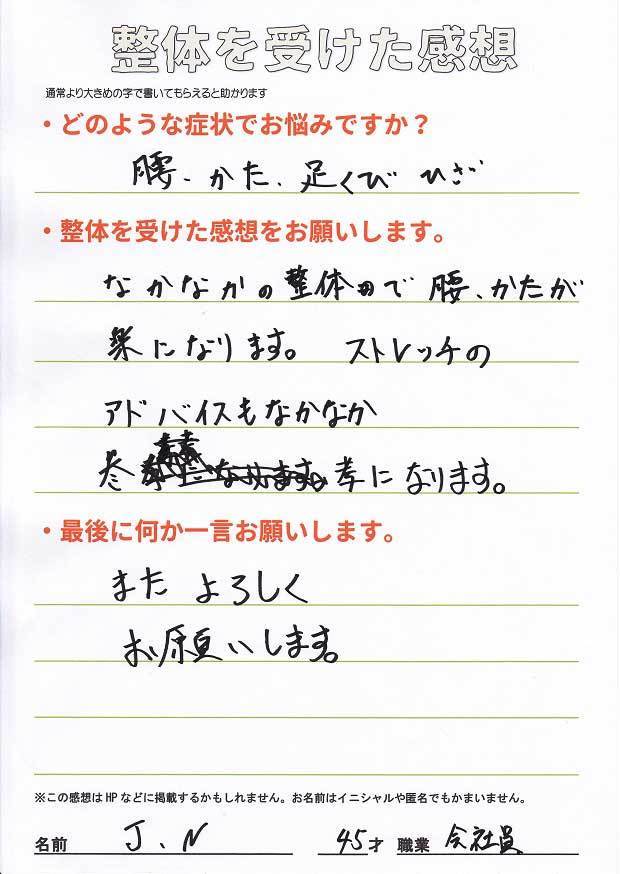 整体を受けた感想
通常より大きめの字で書いてもらえると助かります
・どのような症状でお悩みですか？
腰、かた、足くび ひざ
・整体を受けた感想をお願いします。
なかなかの整体で 腰、かたが
楽になります。 ストレッチの
アドバイスもなかなか
参 になります。考になります。
・最後に何か一言お願いします。
また よろしく
お願いします。
※この感想はHPなどに掲載するかもしれません。お名前はイニシャルや匿名でもかまいません。
名前 J.N 45才 職業 会社員